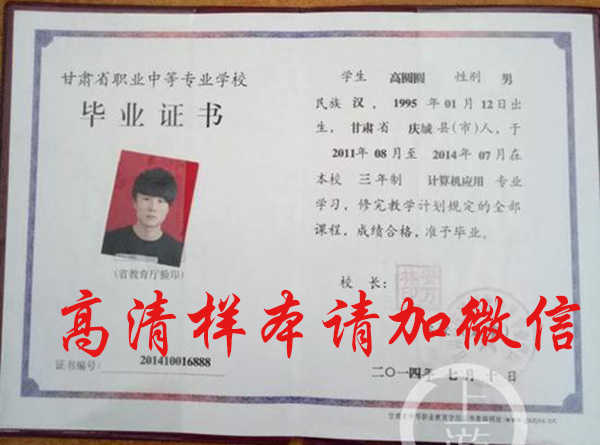 甘肃省职业中等专业学校
毕业证书
(省教育厅验印)
证书编号: 201410016888
学生 高圆圆 性别 男
民族 汉, 1995 年 01 月 12 日出
生, 甘肃省 庆城 县(市)人, 于
2011 年 08 月至 2014 年 07 月在
本校 三年制 计算机应用 专业
学习, 修完教学计划规定的全部
课程, 成绩合格, 准予毕业。
校 长:
高清样本请加微信
二〇一四年 七月 十日
上游